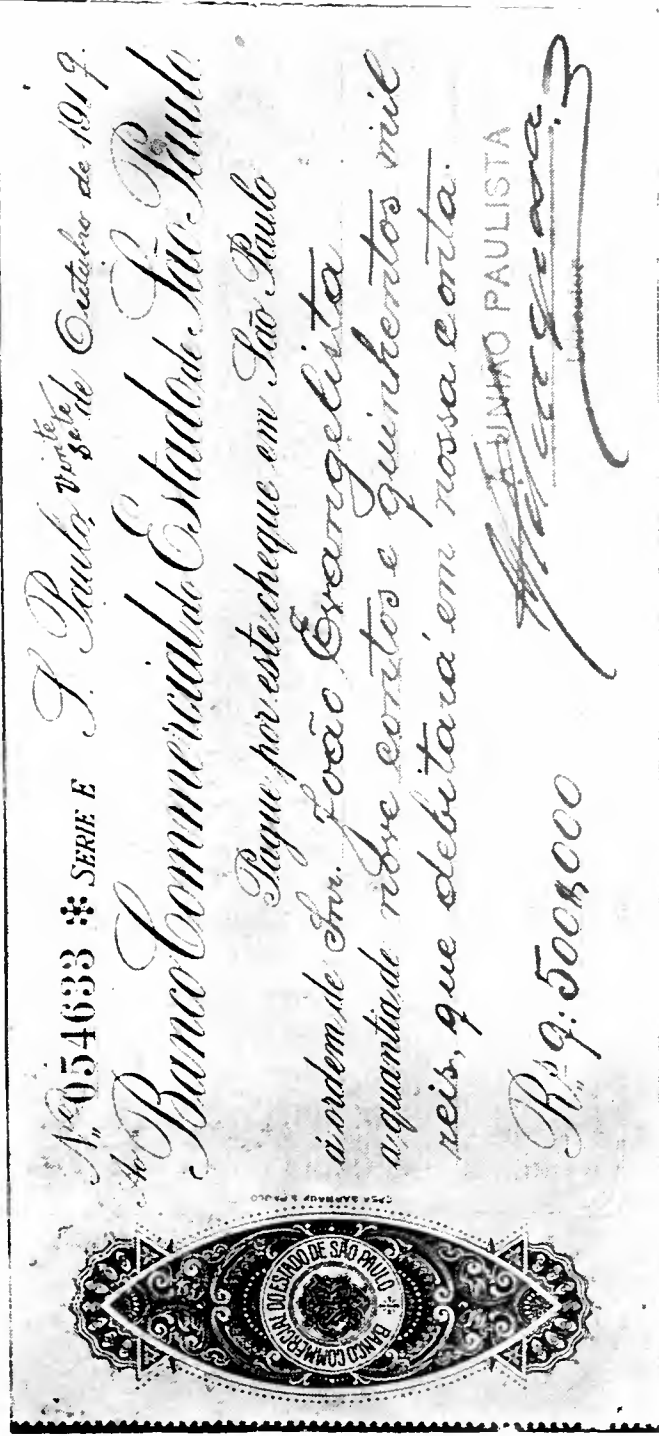 Nº 054633 ⁕ SERIE E S. Paulo, vinte sete de Outubro de 1917.
Ao Banco Commercial do Estado de São Paulo
Pague por este cheque em São Paulo
á ordem de Snr. João Evangelista
a quantia de nove contos e quinhentos mil
reis, que debitará em nossa conta.
A UNIÃO PAULISTA
Rs. 9:500$000
BANCO COMMERCIAL DO ESTADO DE SÃO PAULO